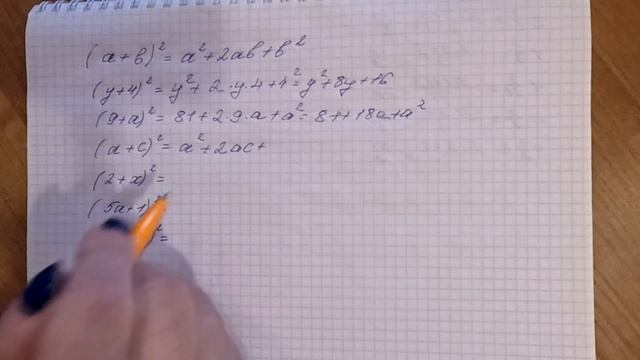 (a+b)² = a²+2ab+b²
(y+4)² = y²+2·y·4+4²=y²+8y+16
(9+a)² = 81+2·9·a+a²=81+18a+a²
(a+c)² = a²+2ac+
(2+x)² =
(5a+1)²
)² =